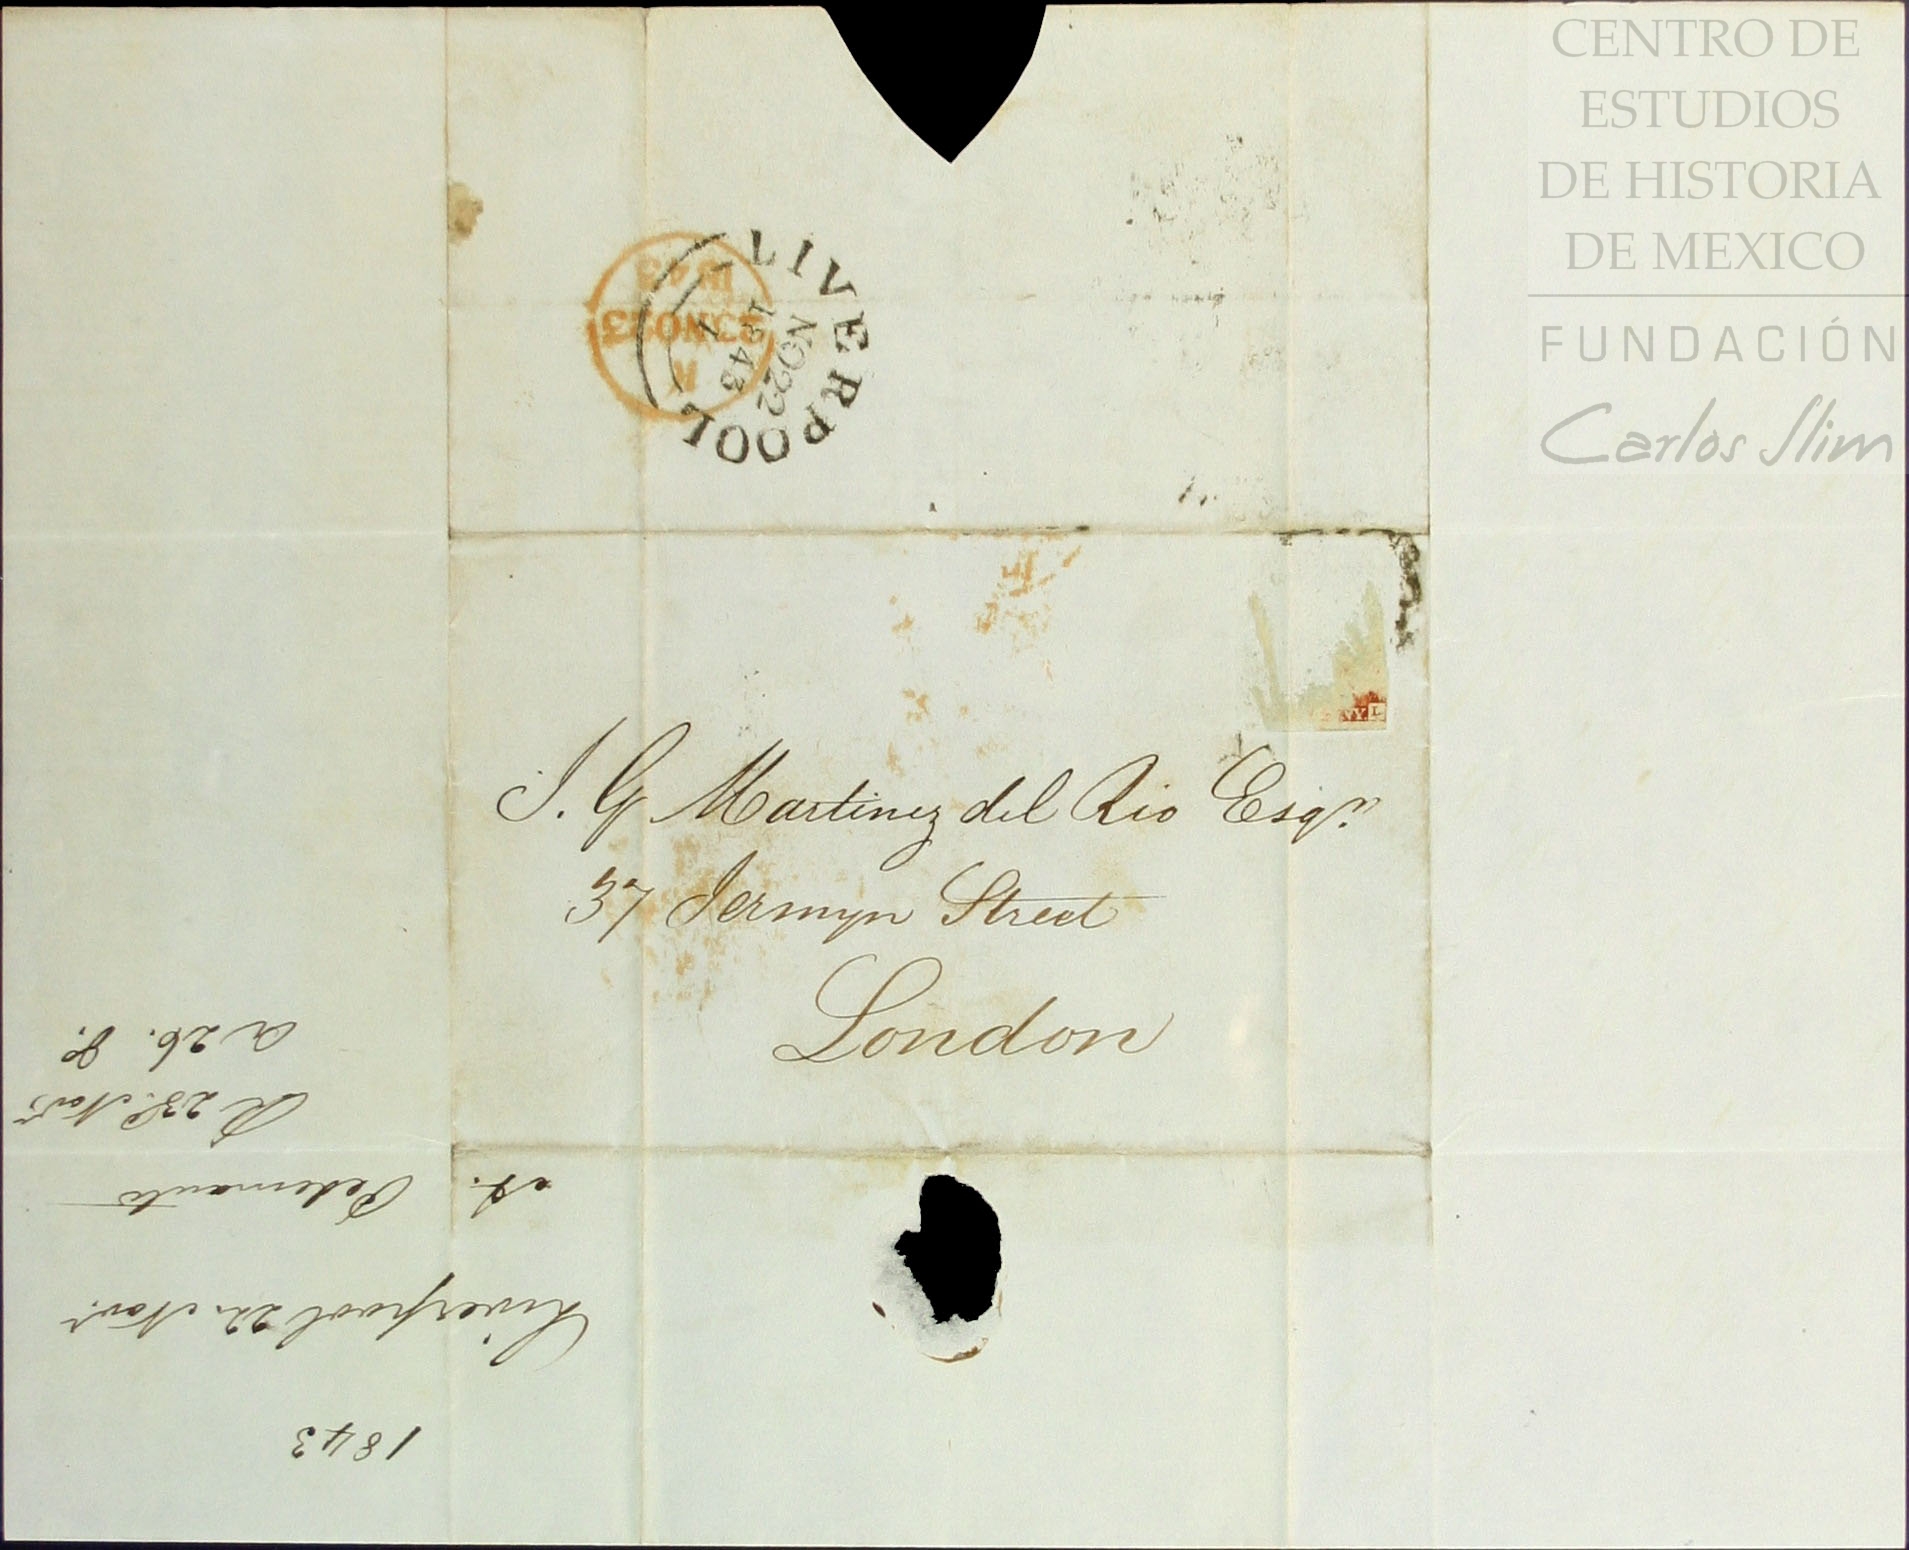 CENTRO DE
ESTUDIOS
DE HISTORIA
DE MEXICO
FUNDACIÓN
Carlos Slim
LIVERPOOL
NO 22
1843
23NO23
1843
J. G Martinez del Rio Esqr.
37 Jermyn Street
London
1843
Liverpool 22. Novr.
A.
R 23 Novr.
a 26.